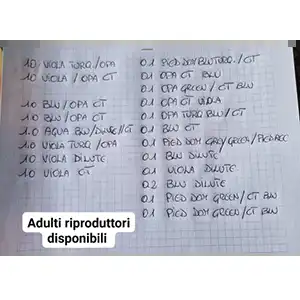 1.0 VIOLA TURQ./OPA
1.0 VIOLA / OPA CT
1.0 BLU / OPA CT
1.0 AQUA BLU/DILUTE//CT
1.0 VIOLA TURQ /OPA
1.0 VIOLA DILUTE
1.0 VIOLA CT
0.1 PIED DOM BLU TURQ. / CT
0.1 OPA CT BLU
0.1 OPA GREEN / CT BLU
0.1 OPA CT VIOLA
0.1 OPA TURQ BLU / CT
0.1 BLU CT
0.1 PIED DOM GREY/GREEN/PIED REC
0.1 BLU DILUTE
0.1 VIOLA DILUTE
0.2 BLU DILUTE
0.1 PIED DOM GREEN / CT BLU
0.1 PIED DOM GREEN / CT BLU
Adulti riproduttori
disponibili